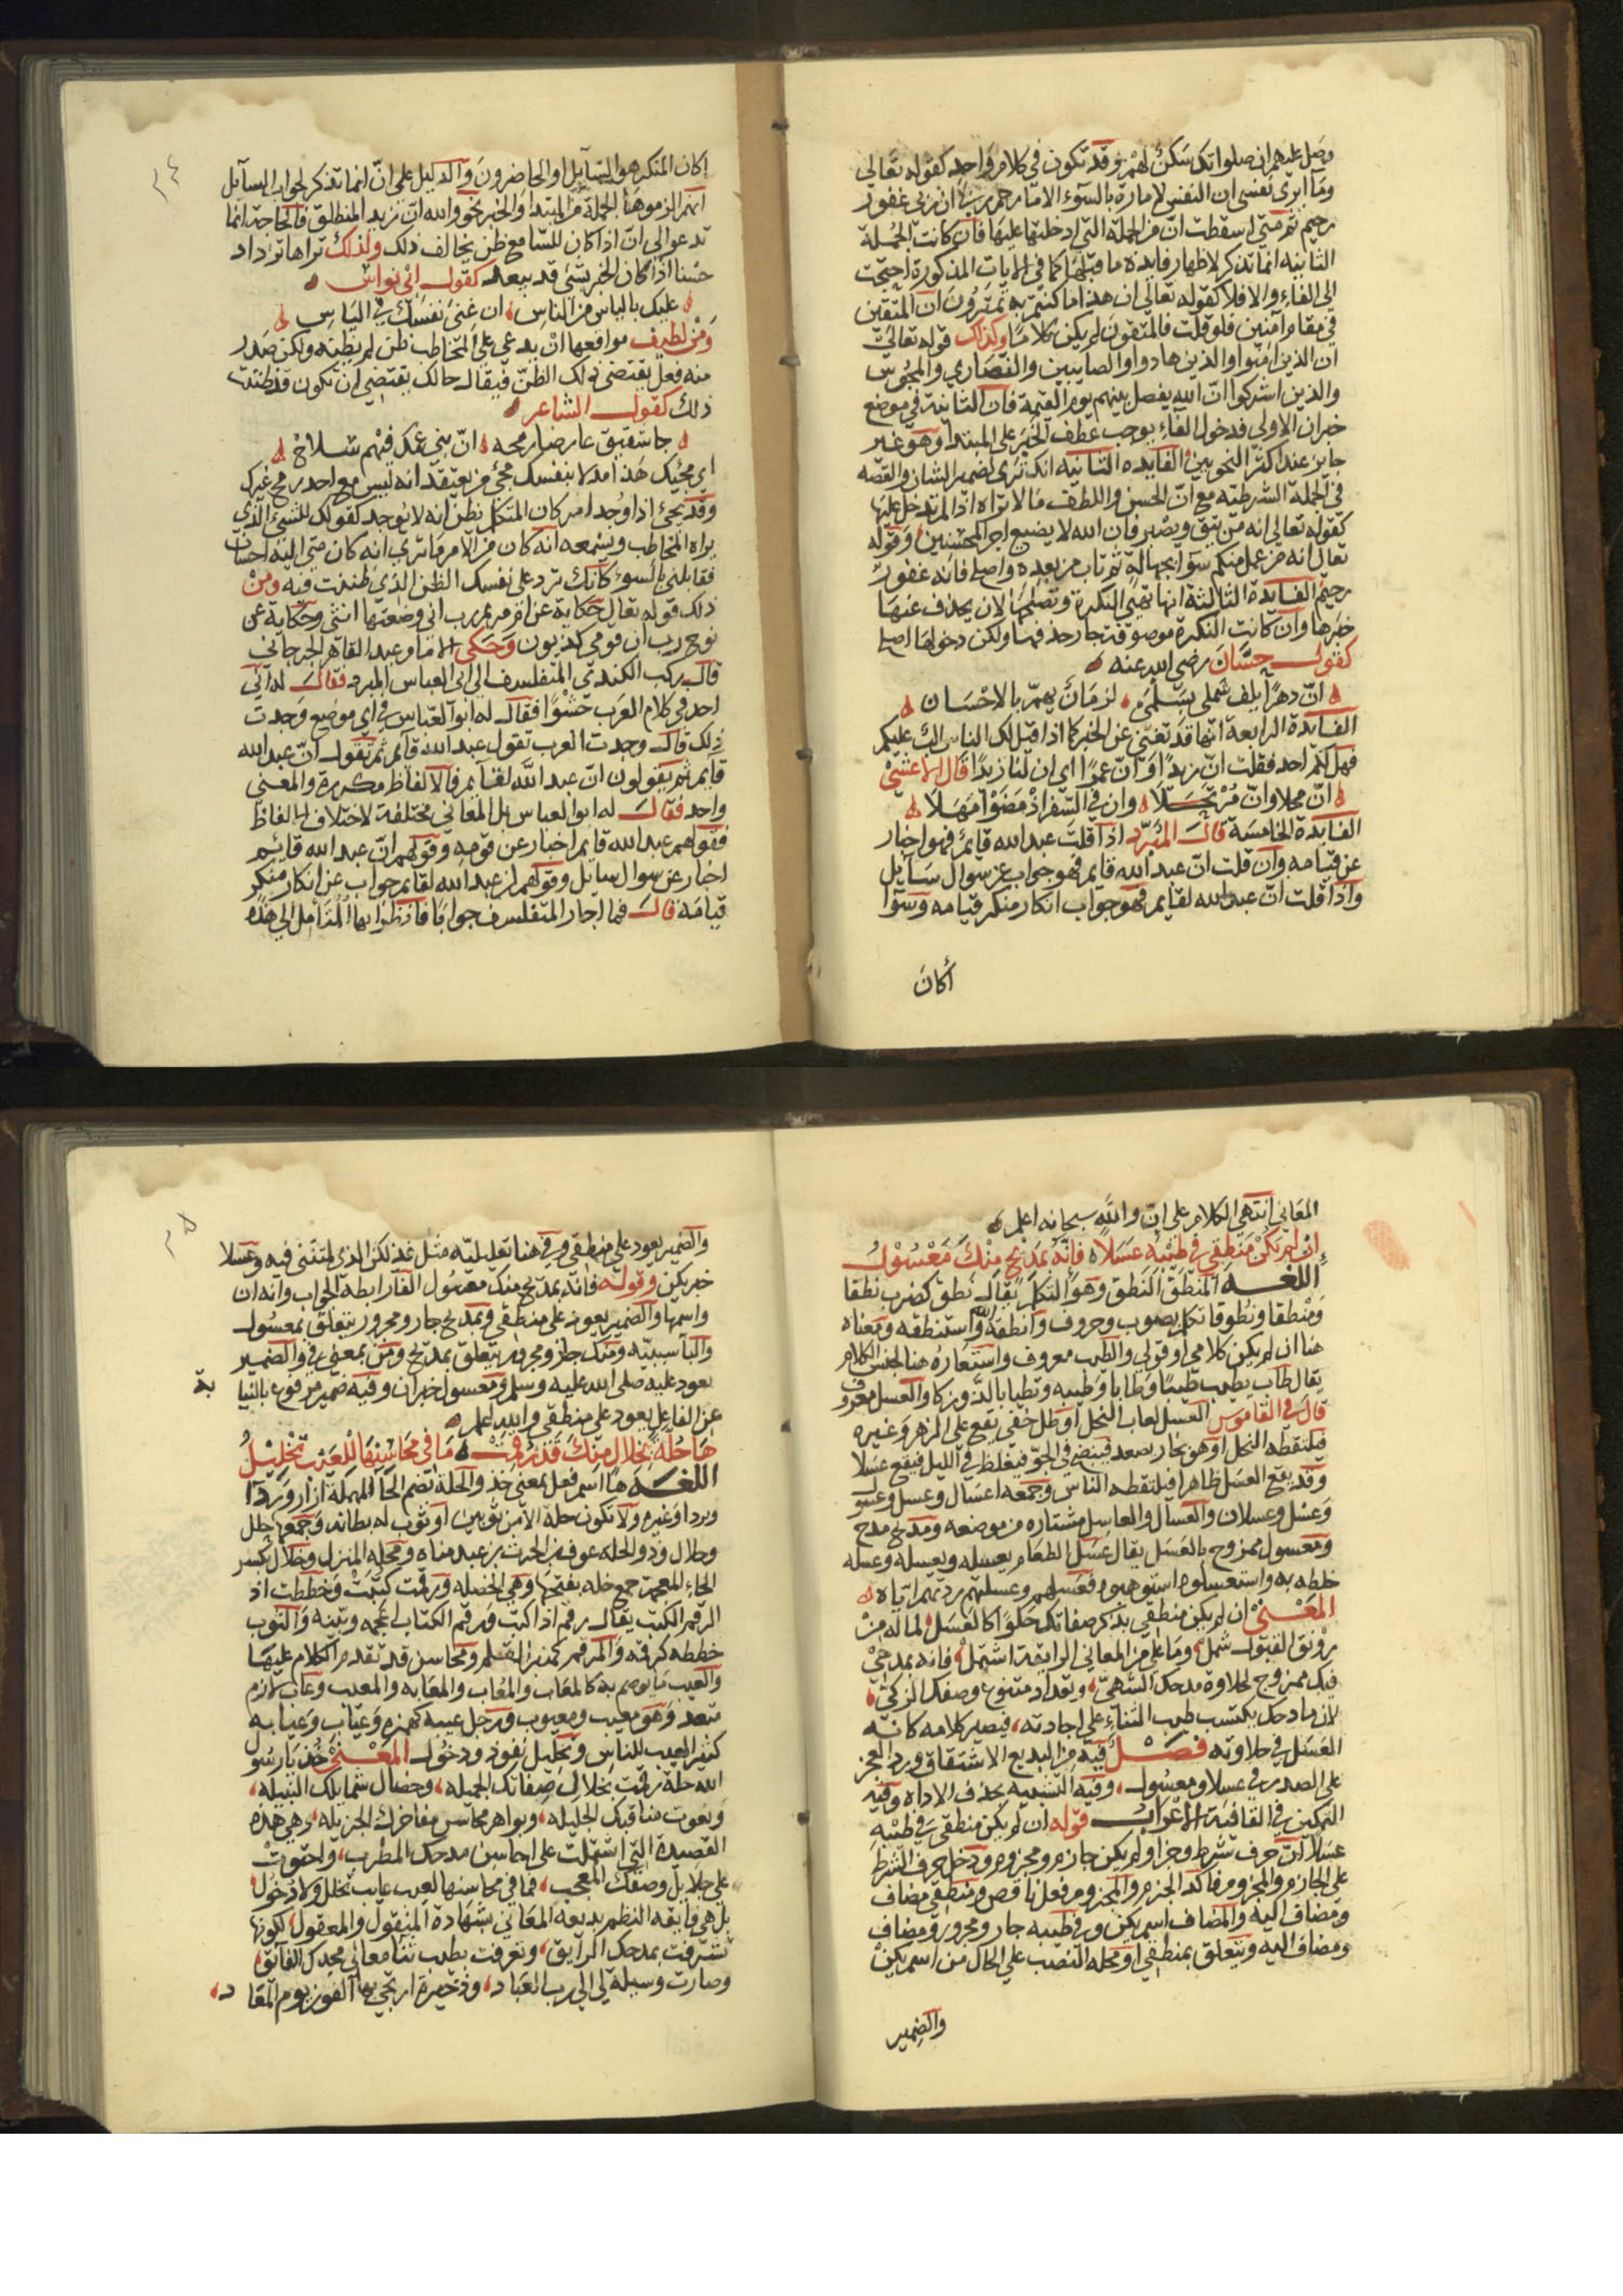 وصل عليهم ان صلواتك سكن لهم وقد تكون في كلام واحد كقوله تعالى
وما ابرى نفسى ان النفس لامارة بالسوء الا ما رحم ربي ان ربي غفور
رحيم ثم متى اسقطت ان من الجملة التي ادخلتها عليها فان كانت الجملة
الثانيه انما تذكر لاظهار فايدة ما قبلها كما في الايات المذكورة احتجت
الى الفاء والا فلا كقوله تعالى ان هذا ما كنتم به تمترون ان المتقين
في مقام امنين فلو قلت فالمتقون لم يكن كلاما وكذلك قوله تعالى
ان الذين امنوا والذين هادوا والصابيين والنصاري والمجوس
والذين اشركوا ان الله يفصل بينهم يوم القيمة فان الثانية في موضع
خبر ان الاولى فدخول الفاء يوجب عطف الخبر على المبتدا وهو غير
جايز عند اكثر النحويين الفايده الثانيه انك ترى لضمير الشان والقصه
في الجملة الشرطية مع ان الحسن واللطف ما لا تراه اذا لم تدخل عليها
كقوله تعالى انه من يتق ويصبر فان الله لا يضيع اجر المحسنين وقوله
تعالى انه من عمل منكم سوا بجهالة ثم تاب من بعده واصلح فانه غفور
رحيم الفايدة الثالثة انها تهيي النكرة وتصلحها لان يحذف عنها
خبرها وان كانت النكرة موصوفة جاز حذفها ولكن دخولها اصلح
كقول حسان رضى الله عنه
ان دهرا يلف شملي بسلمى لزمان يهم بالاحسان
الفايدة الرابعة انها قد تغني عن الخبر كما اذا قيل لك الناس الب عليكم
فهل لكم احد فقلت ان زيدا وان عمرا اي ان لنا زيدا قال الاعشى
ان محلا وان مرتحلا وان في السفر اذ مضوا مهلا
الفايدة الخامسة قال المبرد اذا قلت عبد الله قايم فهو اخبار
عن قيامه وان قلت ان عبد الله قايم فهو جواب عن سوال سايل
واذا قلت ان عبد الله لقايم فهو جواب انكار منكر قيامه وسوا
أكان
٢٤
اكان المنكر هو السايل او الحاضرون والدليل على ان انما تذكر لجواب السايل
انهم الزموها الجملة من المبتدا والخبر نحو والله ان زيد المنطلق فالحاجة انما
تدعو الى ان اذا كان للسامع ظن يخالف ذلك ولذلك تراها تزداد
حسنا اذا كان الخبر بشئ قد يبعد كقول ابي نواس
عليك بالياس من الناس ان غنى نفسك في الياس
ومن لطيف مواقعها ان يدعي على المخاطب ظن لم يظنه ولكن صدر
منه فعل يقتضى ذلك الظن فيقال حالك يقتضي ان تكون قد ظننت
ذلك كقول الشاعر
جا شقيق عارضا رمحه ان بني عمك فيهم سلاح
اي مجيك هذا مدلا بنفسك مجئ من يعتقد انه ليس مع احد رمح غيرك
وقد يجئ اذا وجد امر كان المتكلم يظن انه لا يوجد كقولك للشئ الذي
يراه المخاطب ويسمعه انه كان من الامر ما ترى انه كان مني اليه احسان
فقابلني بالسوء كانك ترد على نفسك الظن الذي ظننت فيه ومن
ذلك قوله تعالى حكاية عن ام مريم رب اني وضعتها انثى وحكاية عن
نوح رب ان قومي كذبون وحكى الامام عبد القاهر الجرجاني
قال ركب الكندي المتفلسف الى ابي العباس المبرد فقال له اني
اجد في كلام العرب حشوا فقال له ابو العباس في اي موضع وجدت
ذلك قال وجدت العرب تقول عبد الله قايم ثم تقول ان عبد الله
قايم ثم يقولون ان عبد الله لقايم فالالفاظ مكررة والمعنى
واحد فقال له ابو العباس بل المعاني مختلفة لاختلاف الالفاظ
فقولهم عبد الله قايم اخبار عن قومه وقولهم ان عبد الله قائم
اخبار عن سوال سايل وقولهم ان عبد الله لقايم جواب عن انكار منكر
قيامه قال فما احار المتفلسف جوابا فانظر ايها المتامل الى هذه
المعاني انتهى الكلام على ان والله سبحانه اعلم
ان لم يكن منطقي في طيبه عسلا فانه بمديح منك معسول
اللغة المنطق النطق وهو التكلم يقال نطق كضرب نطقا
ومنطقا ونطوقا تكلم بصوت وحروف وانطقه الله واستنطقه ومعناه
هنا ان لم يكن كلامي او قولي والطيب معروف واستعاره هنا لجنس الكلام
يقال طاب يطيب طيبا وطابا وطيبه وتطيابا لذ وزكا والعسل معروف
قال في القاموس العسل لعاب النحل او طل خفي يقع على الزهر وغيره
فيلتقطه النحل او هو بخار يصعد فينضج في الجو فيغلظ في الليل فيقع عسلا
وقد يقع العسل ظاهرا فيلتقطه الناس وجمعه اعسال وعسل وعسو
وعسل وعسلان والعسال والعاسل مشتاره من موضعه ومديح مدح
ومعسول ممزوج بالعسل يقال عسل الطعام يعسله ويعسله وعسله
خلطه به واستعسلوه استوهبوه فعسلهم وعسلتهم زدتهم اياه
المعنى ان لم يكن منطقي بذكر صفاتك حلوا كالعسل لما له من
رونق القبول شمل وما على من المعاني الرايقة اشتمل فانه بمدحي
فيك ممزوج لحلاوة مدحك الشهي وتعداد متنوع وصفك الزكي
لان مادحك يكتسب طيب الثناء على اجادته فيصير كلامه كانه
العسل في حلاوته فصل فيه من البديع الاشتقاق ورد العجز
على الصدر في عسلا ومعسول وفيه التشبيه بحذف الاداه وفيه
التمكين في القافية الاعراب قوله ان لم يكن منطقي في طيبه
عسلا ان حرف شرط وجزا ولم يكن جازم ومجزوم ودخل حرف الشرط
على الجازم والمجزوم فاكد الجزم والمجزوم فعل ناقص ومنطقي مضاف
ومضاف اليه والمضاف اسم يكن وفي طيبه جار ومجرور ومضاف
ومضاف اليه ويتعلق بمنطقي او محله النصب على الحال من اسم يكن
والضمير
٢٥
والضمير يعود على منطقي وفي هنا تعليليه مثل فذلكن الذي لمتنني فيه وعسلا
خبر يكن وقوله فانه بمديح منك معسول الفا رابطة الجواب وانه ان
واسمها والضمير يعود على منطقي وبمديح جار ومجرور يتعلق بمعسول
والبا سببيه ومنك جار ومجرور يتعلق بمديح ومن بمعنى في والضمير
يعود عليه صلى الله عليه وسلم ومعسول خبر ان وفيه ضمير مرفوع بالنيا
بة
عن الفاعل يعود على منطقي والله اعلم
ها حلة بخلال منك قد رقمت ما في محاسنها للعيب تخليل
اللغة ها اسم فعل بمعنى خذ والحلة بضم الحا المهملة ازار وردا
وبردا وغيره ولا تكون حلة الا من ثوبين او ثوب له بطانه وجمعها حلل
وحلال وذو الحله عوف بن الحرث بن عبد مناه ومحله المنزل وخلال بكسر
الخاء المعجمة جمع خله بفتحها وهي الخصله ورقمت كتبت وخططت اذ
الرقم الكتب يقال رقم اذا كتب ورقم الكتاب اعجمه وبينه والثوب
خططه كرقمه والمرقم كمنبر القلم ومحاسن قد تقدم الكلام عليها
والعيب ما يوصم به كالمعاب والمعاب والمعابه والمعيب وعاب لازم
متعد وهو معيب ومعيوب ورجل عيبه كهمزه وعياب وعيابه
كثير العيب للناس وتخليل نفوذ ودخول المعنى خذ يا رسول
الله حلة رقمت بخلال صفاتك الجميله وخصال شمايلك النبيله
ونعوت مناقبك الجليله وبواهر محاسن مفاخرك الجزيله وهي هذه
القصيدة التي اشتملت على احاسن مدحك المطرب واحتوت
على جلايل وصفك المعجب فما في محاسنها لعيب عايب تخلل ولا دخول
بل هي فايقه النظم بديعه المعاني بشهادة المنقول والمعقول لكونها
تشرفت بمدحك الرايق وتعرفت بطيب ثنا معالي مجدك الفائق
وصارت وسيلة لي الى رب العباد وذخيرة ارتجي بها الفوز يوم المعاد